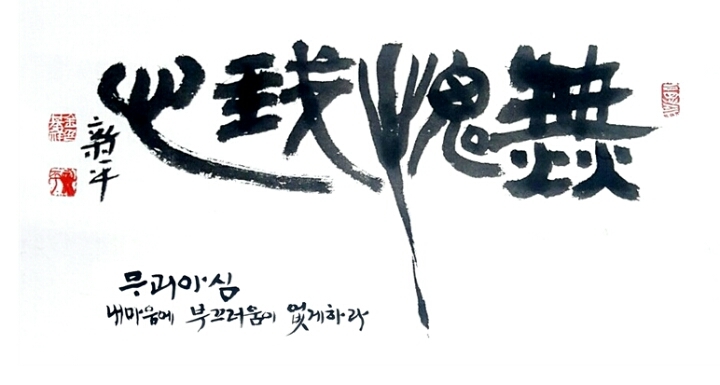 無愧我心
新平
무괴아심
내마음에 부끄러움이 없게하라